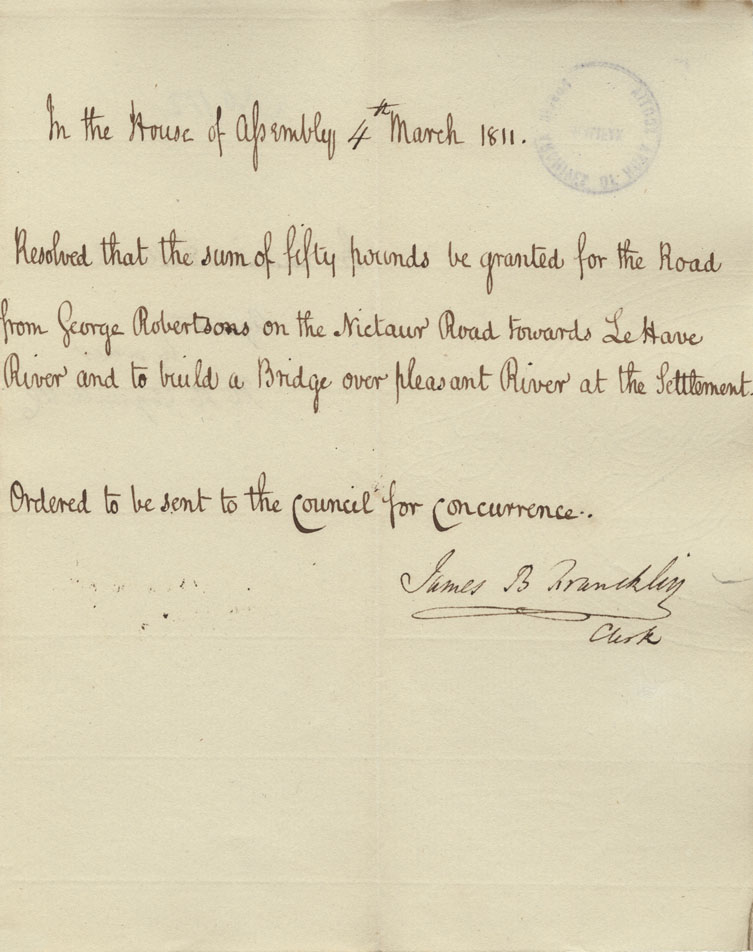 In the House of Assembly 4th March 1811.
Resolved that the sum of fifty pounds be granted for the Road
from George Robertsons on the Nictaur Road towards Le Have
River and to build a Bridge over pleasant River at the Settlement.
Ordered to be sent to the Council for Concurrence.
James B Francklin
Clerk